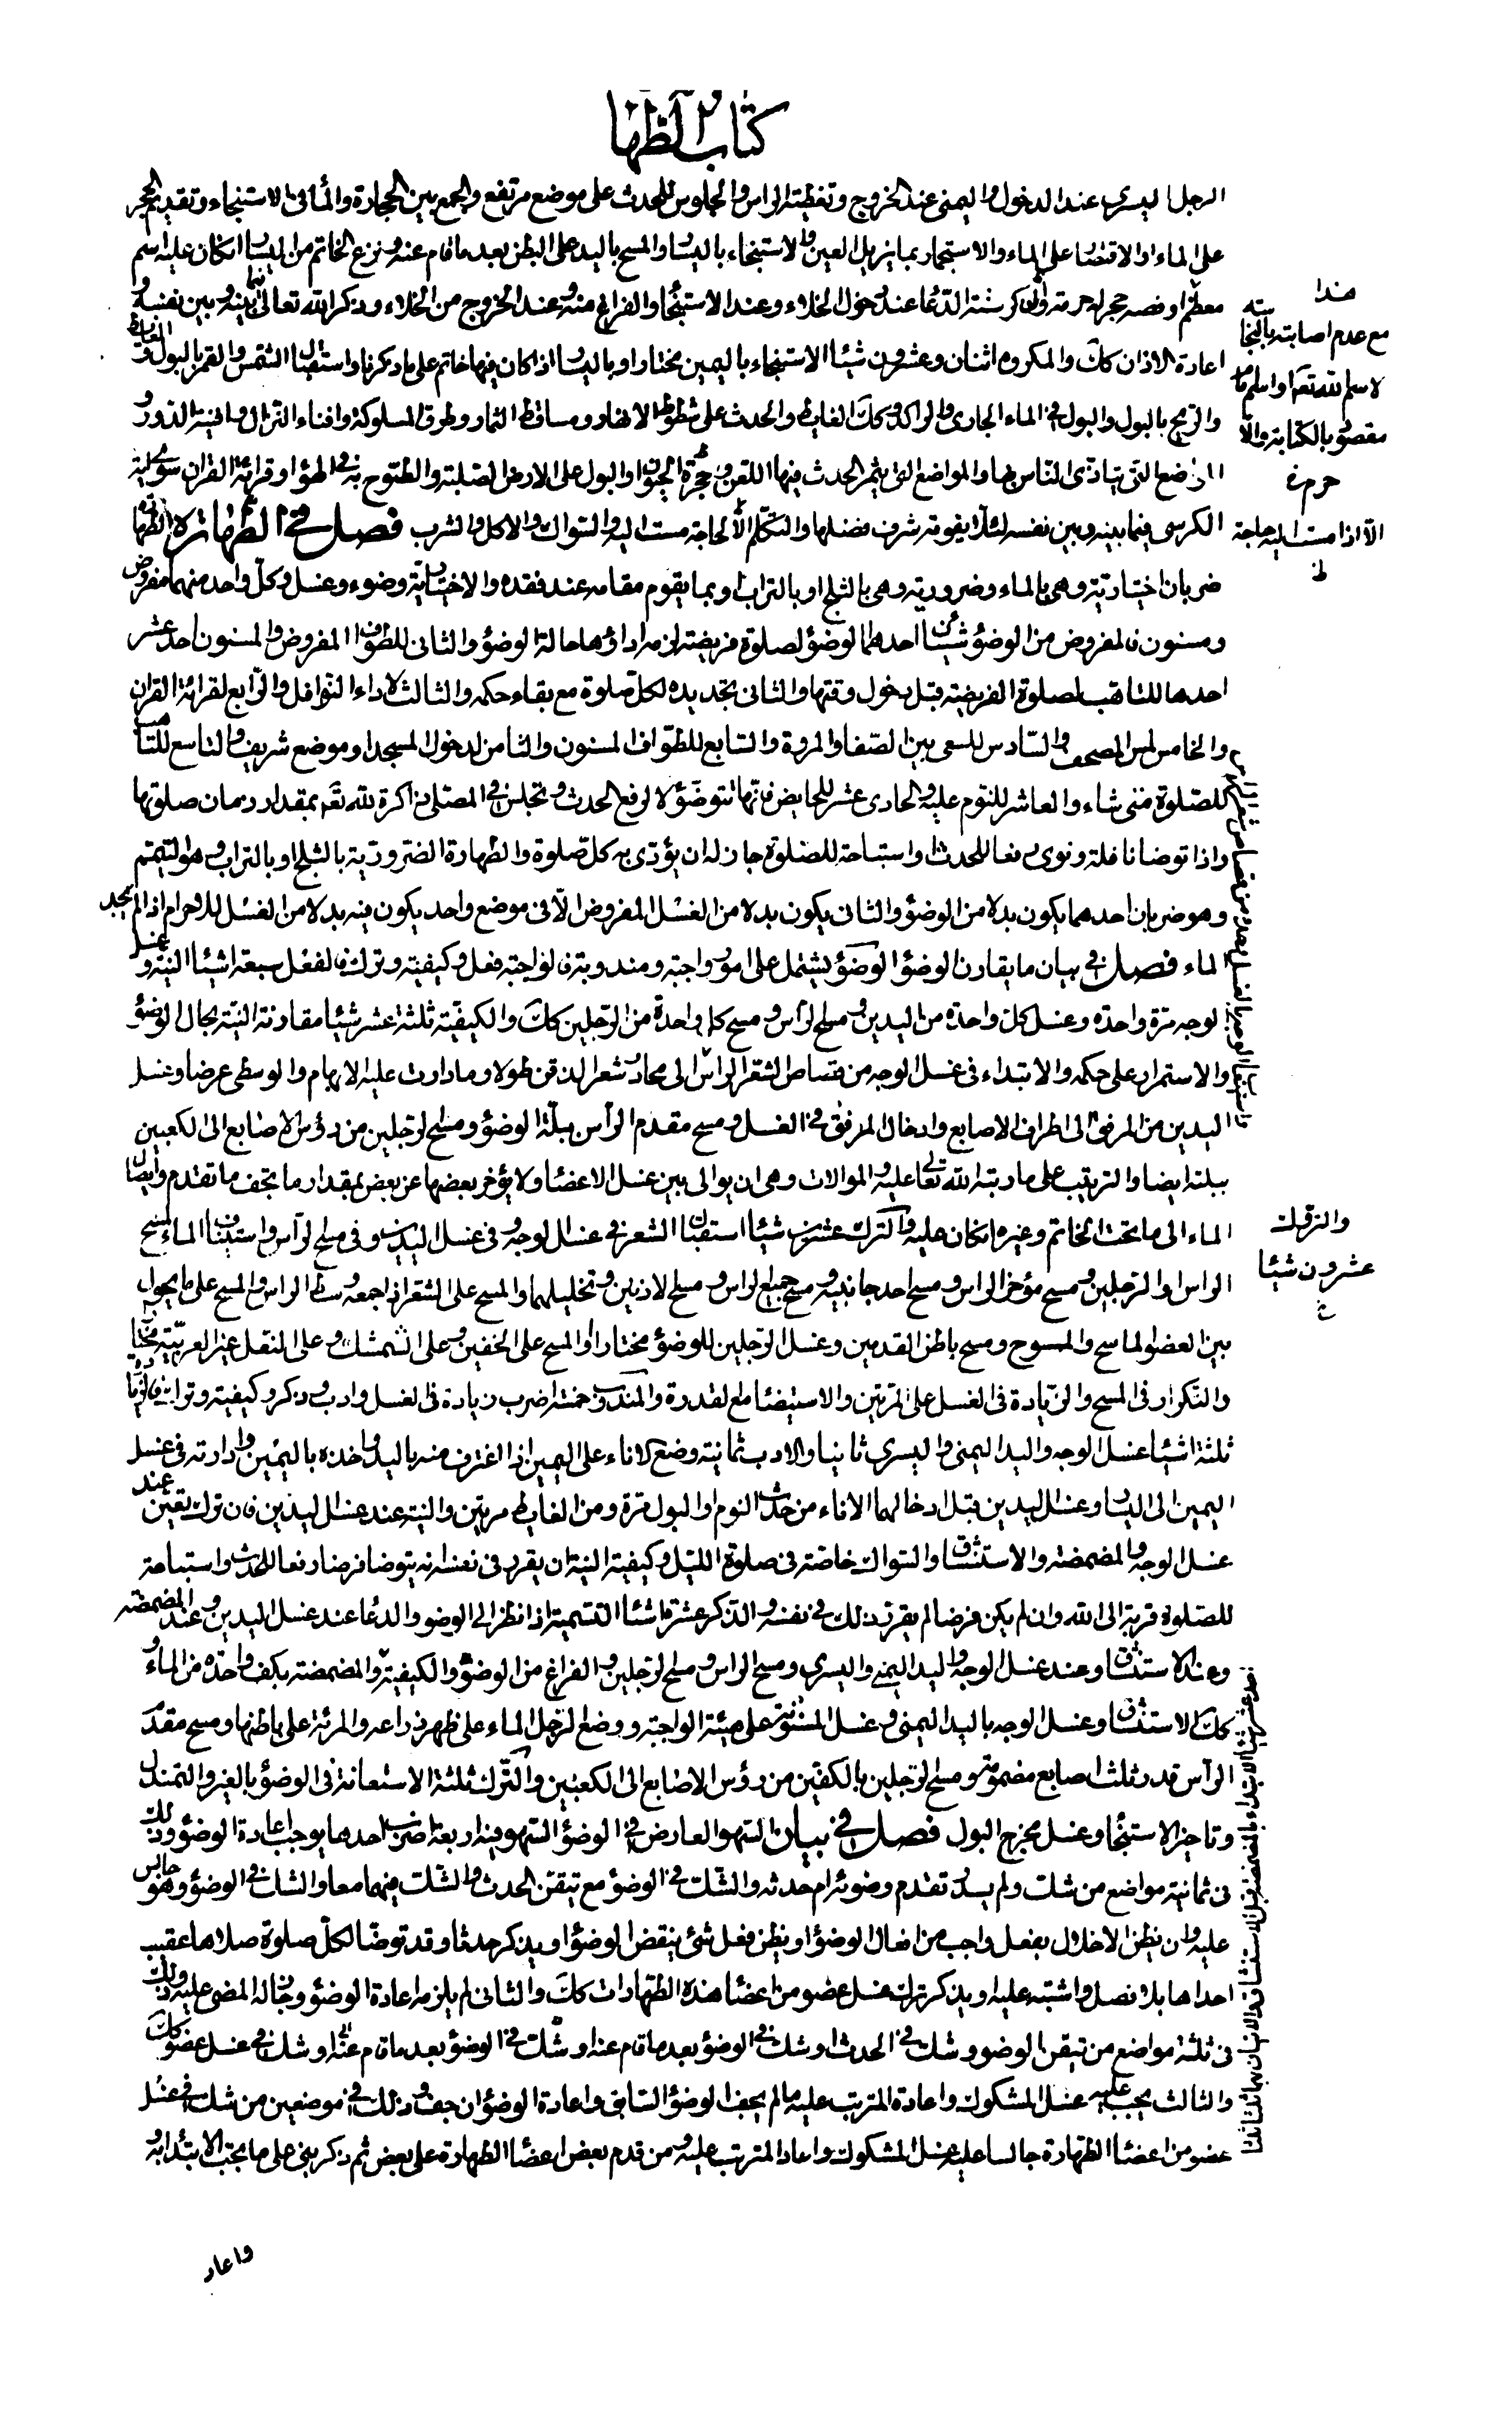 كتاب الطهارة
الرجل اليسرى عند الدخول واليمنى عند الخروج وتغطية الراس والجلوس للحدث على موضع مرتفع والجمع بين الحجارة والماء فى الاستنجاء وتقديم الحجر
على الماء او الاقتصار على الماء والاستجمار بما يزيل العين والاستنجاء باليسار والمسح باليد على البطن بعد ما قام عنه ونزع الخاتم من اليسار ان كان عليه اسم
معظم او فصه حجر له حرمة والدعاء عند دخول الخلاء وعند الاستنجاء والفراغ منه وعند الخروج من الخلاء وذكر الله تعالى فيما بينه وبين نفسه و
اعادة الاذان كك والمكروه اثنان وعشرون شيئا الاستنجاء باليمين مختارا وباليسار اذا كان فيها خاتم على ما ذكرنا واستقبال الشمس والقمر بالبول والغايط
والريح بالبول والبول فى الماء الجارى والراكد وكك الغايط والحدث على شطوط الانهار ومساقط الثمار وطرق المسلوكة وافناء النزال وافنية الدور و
المواضع التى يتاذى الناس بها والمواضع التى يثمر الحدث فيها اللعن وجحرة الحيوان والبول على الارض الصلبة والطموح به فى الهواء وقرائة القران سوى اية
الكرسى فيما بينه وبين نفسه لئلا يفوته شرف فضلها والتكلم الا لحاجة مست اليه والسواك والاكل والشرب فصل فى الطهارة الطهارة
ضربان اختيارية وهى بالماء وضرورية وهى بالثلج او بالتراب او بما يقوم مقامه عند فقده والاختيارية وضوء وغسل وكل واحد منهما مفروض
ومسنون فالمفروض من الوضوء شيئان احدهما الوضوء لصلوة فريضة لزمه اداؤها حالة الوضوء والثانى للطواف المفروض والمسنون احد عشر
احدها للتاهب لصلوة الفريضة قبل دخول وقتها والثانى تجديده لكل صلوة مع بقاء حكمه والثالث لاداء النوافل والرابع لقرائة القران
والخامس لمس المصحف والسادس للسعى بين الصفا والمروة والسابع للطواف المسنون والثامن لدخول المسجد او موضع شريف والتاسع للتاهب
للصلوة متى شاء والعاشر للنوم عليه والحادى عشر للحايض فانها تتوضؤ لا لرفع الحدث وتجلس فى المصلى ذاكرة لله تعه بمقدار زمان صلوتها
واذا توضا نافلة ونوى رفعا للحدث او استباحة للصلوة جاز له ان يؤدى به كل صلوة والطهارة الضرورية بالثلج او بالتراب وهو التيمم
وهو ضربان احدهما يكون بدلا من الوضوء والثانى يكون بدلا من الغسل المفروض الا فى موضع واحد يكون فيه بدلا من الغسل للاحرام اذا لم يجد
الماء فصل فى بيان ما يقارن الوضوء الوضوء يشتمل على امور واجبة ومندوبة فالواجبة فعل وكيفية وترك فالفعل سبعة اشياء النية وغسل
الوجه مرة واحدة وغسل كل واحدة من اليدين ومسح الراس ومسح كل واحدة من الرجلين كك والكيفية ثلثة عشر شيئا مقارنة النية بحال الوضوء
والاستمرار على حكمه والابتداء فى غسل الوجه من قصاص الشعر الراس الى محادر شعر الذقن طولا وما دارت عليه الابهام والوسطى عرضا وغسل
اليدين من المرفق الى اطراف الاصابع وادخال المرفق فى الغسل ومسح مقدم الرأس ببلة الوضوء ومسح الرجلين من رؤس الاصابع الى الكعبين
ببلته ايضا والترتيب على ما رتبه الله تعالى عليه والموالات وهى ان يوالى بين غسل الاعضاء ولا يؤخر بعضها عن بعض بمقدار ما يجف ما تقدم وايصال
الماء الى ما تحت الخاتم وغيره ان كان عليه والترك عشرون شيئا استقبال الشعر فى غسل الوجه وفى غسل اليدين وفى مسح الرأس واستيناف الماء لمسح
الراس او الرجلين ومسح مؤخر الراس ومسح احد جانبيه ومسح جميع الراس ومسح الاذنين وتخليلهما والمسح على الشعر اذا جمعه وسط الراس والمسح على ما يحول
بين العضو الماسح والممسوح ومسح باطن القدمين وغسل الرجلين للوضوء مختارا والمسح على الخفين وعلى الشمشك وعلى النعل غير العربية مختارا
والتكرار فى المسح والزيادة فى الغسل على المرتين والاستيضاء مع القدرة والمندوب خمسة اضرب زيادة فى الغسل وادب وذكر وكيفية وترك فالزيادة
ثلثة اشياء غسل الوجه واليد اليمنى واليسرى ثانيا والادب ثمانية وضع الاناء على اليمين اذا اغترف منه باليد واخذه باليمين وادارته فى غسل
اليمين الى اليسار وغسل اليدين قبل ادخالهما الاناء من حدث النوم او البول مرة ومن الغايط مرتين والنية عند غسل اليدين فان ترك تعين عند
غسل الوجه والمضمضة والاستنشاق والسواك خاصة فى صلوة الليل وكيفية النية ان يقرر فى نفسه انه يتوضا فرضا رفعا للحدث واستباحة
للصلوة قربة الى الله وان لم يكن فرضا لم يقرر ذلك فى نفسه والذكر عشرة اشياء التسمية اذا نظر الى الوضوء والدعاء عند غسل اليدين وعند المضمضة
وعند الاستنشاق وعند غسل الوجه واليد اليمنى واليسرى ومسح الراس ومسح الرجلين والفراغ من الوضوء والكيفية والمضمضة بكف واحدة من الماء و
كك الاستنشاق وغسل الوجه باليد اليمنى وغسل المسنونة على هيئة الواجبة ووضع الرجل الماء على ظهر ذراعه والمرئة على باطنها ومسح مقدم
الرأس قدر ثلث اصابع مضمومة ومسح الرجلين بالكفين من رؤس الاصابع الى الكعبين والترك ثلثة الاستعانة فى الوضوء بالغير والتمندل
وتاخير الاستنجاء وغسل مخرج البول فصل فى بيان السهو العارض فى الوضوء السهو فيه اربعة اضرب احدها يوجب اعادة الوضوء وذلك
فى ثمانية مواضع من شك ولم يدر تقدم وضوئه ام حدثه والشك فى الوضوء مع تيقن الحدث والشك فيهما معا والشاك فى الوضوء وهو جالس
عليه وان يظن الاخلال بفعل واجب من افعال الوضوء او يظن فعل شئ ينقض الوضوء او يذكر حدثا وقد توضا لكل صلوة صلاها عقيب
احداها بلا فصل واشتبه عليه او يذكر ترك غسل عضو من اعضاء هذه الطهارات كك والثانى لم يلزمه اعادة الوضوء وجاز له المضى عليه وذلك
فى ثلثة مواضع من تيقن الوضوء وشك فى الحدث او شك فى الوضوء بعد ما قام عنه او شك فى الوضوء بعد ما قام عنه او شك فى غسل عضو كك
والثالث يجب عليه غسل المشكوك واعادة المترتب عليه ما لم يجف الوضوء السابق واعادة الوضوء ان جف وذلك فى موضعين من شك فى غسل
عضو من اعضاء الطهارة جالسا عليه غسل المشكوك واعاد المترتب عليه ومن قدم بعض اعضاء الطهارة على بعض ثم ذكر بنى على ما يجب الابتداء به و
واعاد
هذا
مع عدم اصابته بالنجاسة
لاسم الله تعه واسم ما
مقصود بالكتابة والا
حرم
الا اذا مست اليه حاجة
والترك
عشرون شيئا